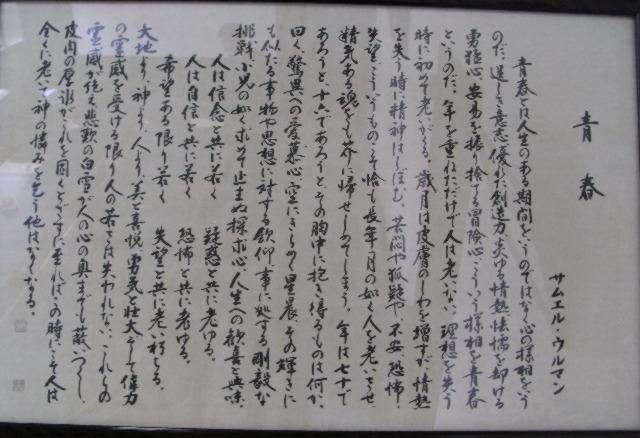 青春
サムエル・ウルマン
青春とは人生のある期間をいうのではなく心の様相をいう
のだ。逞しき意志、優れた創造力、炎ゆる情熱、怯懦を却ける
勇猛心、安易を振り捨てる冒険心、こういう様相を青春
というのだ。年を重ねただけで人は老いない。理想を失う
時に初めて老いがくる。歳月は皮膚のしわを増すが、情熱
を失う時に精神はしぼむ。苦悶や狐疑や、不安、恐怖、
失望、こういうものこそ恰も長年月の如く人を老いさせ
精気ある魂をも芥に帰せしめてしまう。年は七十で
あろうと、十六であろうと、その胸中に抱き得るものは何か、
曰く、驚異への愛慕心、空にきらめく星晨、その輝きに
も似たる事物や思想に対する欽仰、事に処する剛毅な
挑戦、小児の如く求めて止まぬ探求心、人生への歓喜と興味。
人は信念と共に若く 疑惑と共に老ゆる。
人は自信と共に若く 恐怖と共に老ゆる。
希望ある限り若く 失望と共に老い朽ちる。
大地より、神より、人より、美と喜悦、勇気と壮大、そして偉力
の霊感を受ける限り人の若さは失われない。これらの
霊感が絶え、悲歎の白雪が人の心の奥までも蔽いつくし、
皮肉の厚氷がこれを固くとざすに至れば、この時にこそ人は
全くに老いて神の憐みを乞う他はなくなる。